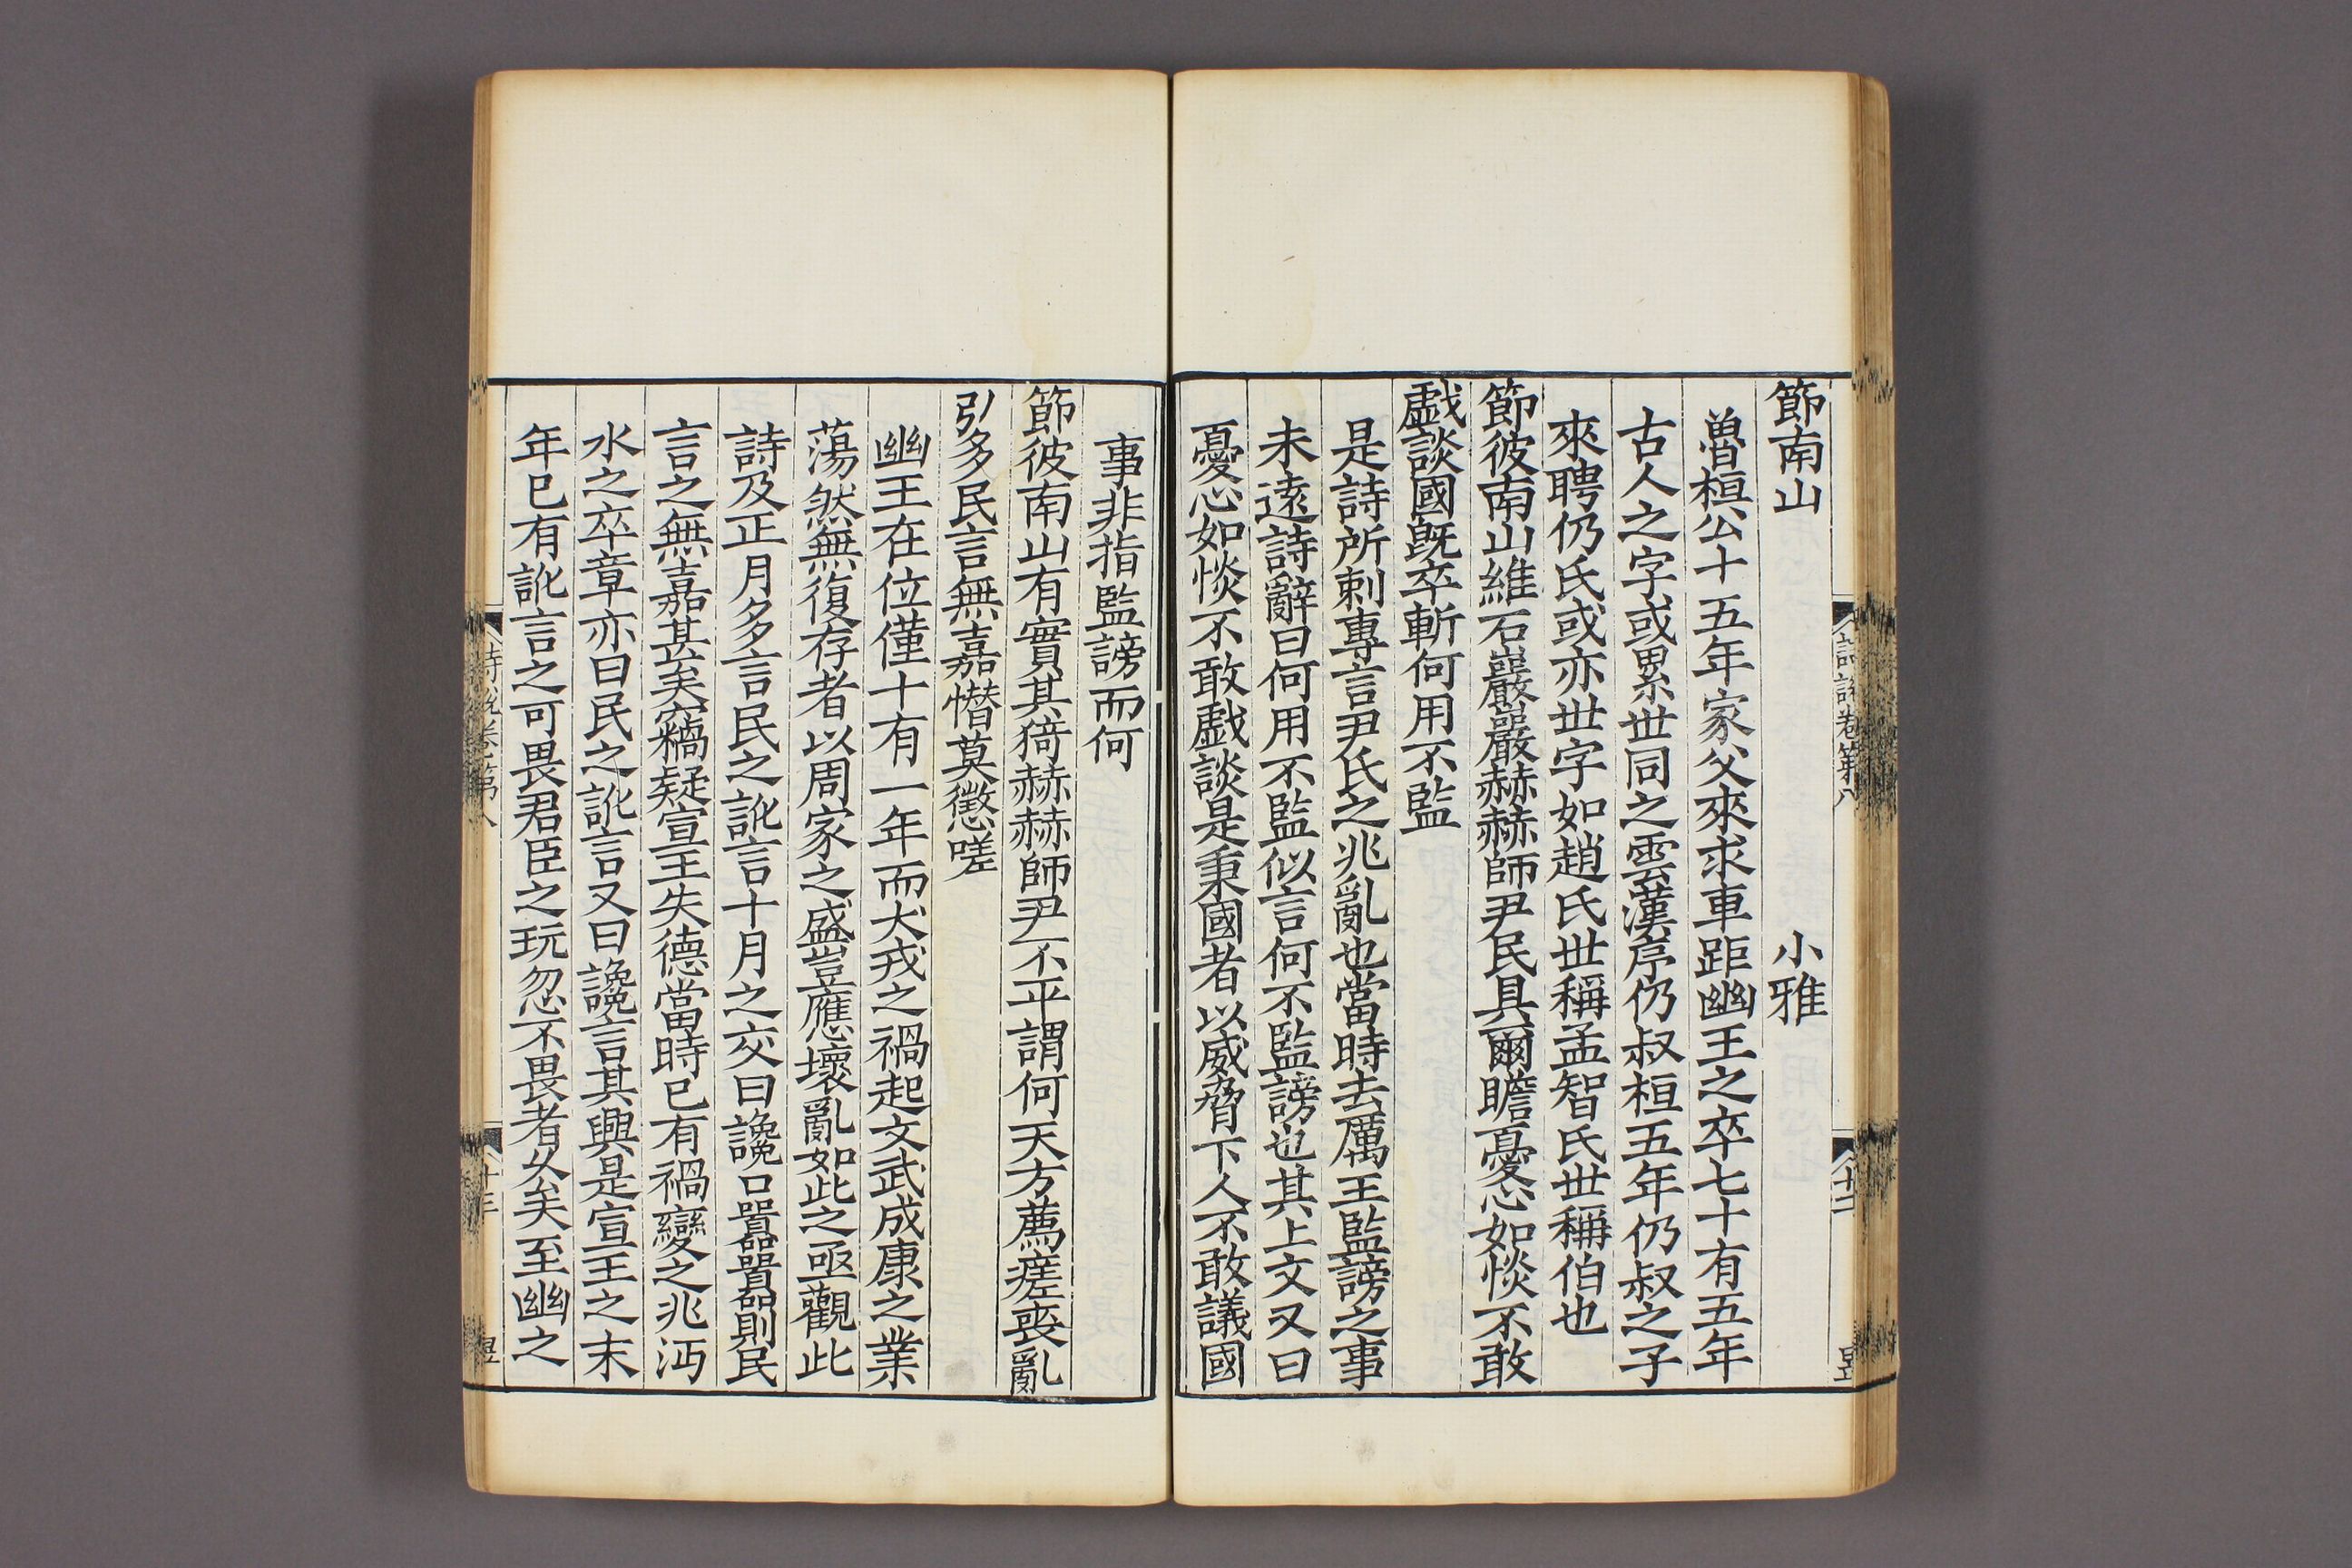 節南山　小雅
魯桓公十五年家父來求車距幽王之卒七十有五年
古人之字或累世同之雲漢序仍叔桓五年仍叔之子
來聘仍氏或亦世字如趙氏世稱孟智氏世稱伯也
節彼南山維石巖巖赫赫師尹民具爾瞻憂心如惔不敢
戲談國旣卒斬何用不監
是詩所刺專言尹氏之兆亂也當時去厲王監謗之事
未遠詩辭曰何用不監似言何不監謗也其上文又曰
憂心如惔不敢戲談是秉國者以威脅下人不敢議國
事非指監謗而何
節彼南山有實其猗赫赫師尹不平謂何天方薦瘥喪亂
弘多民言無嘉憯莫懲嗟
幽王在位僅十有一年而犬戎之禍起文武成康之業
蕩然無復存者以周家之盛豈應壞亂如此之亟觀此
詩及正月多言民之訛言十月之交曰讒口囂囂則民
言之無嘉甚矣竊疑宣王失德當時已有禍變之兆沔
水之卒章亦曰民之訛言又曰讒言其興是宣王之末
年已有訛言之可畏君臣之玩忽不畏者久矣至幽之
詩說卷第八